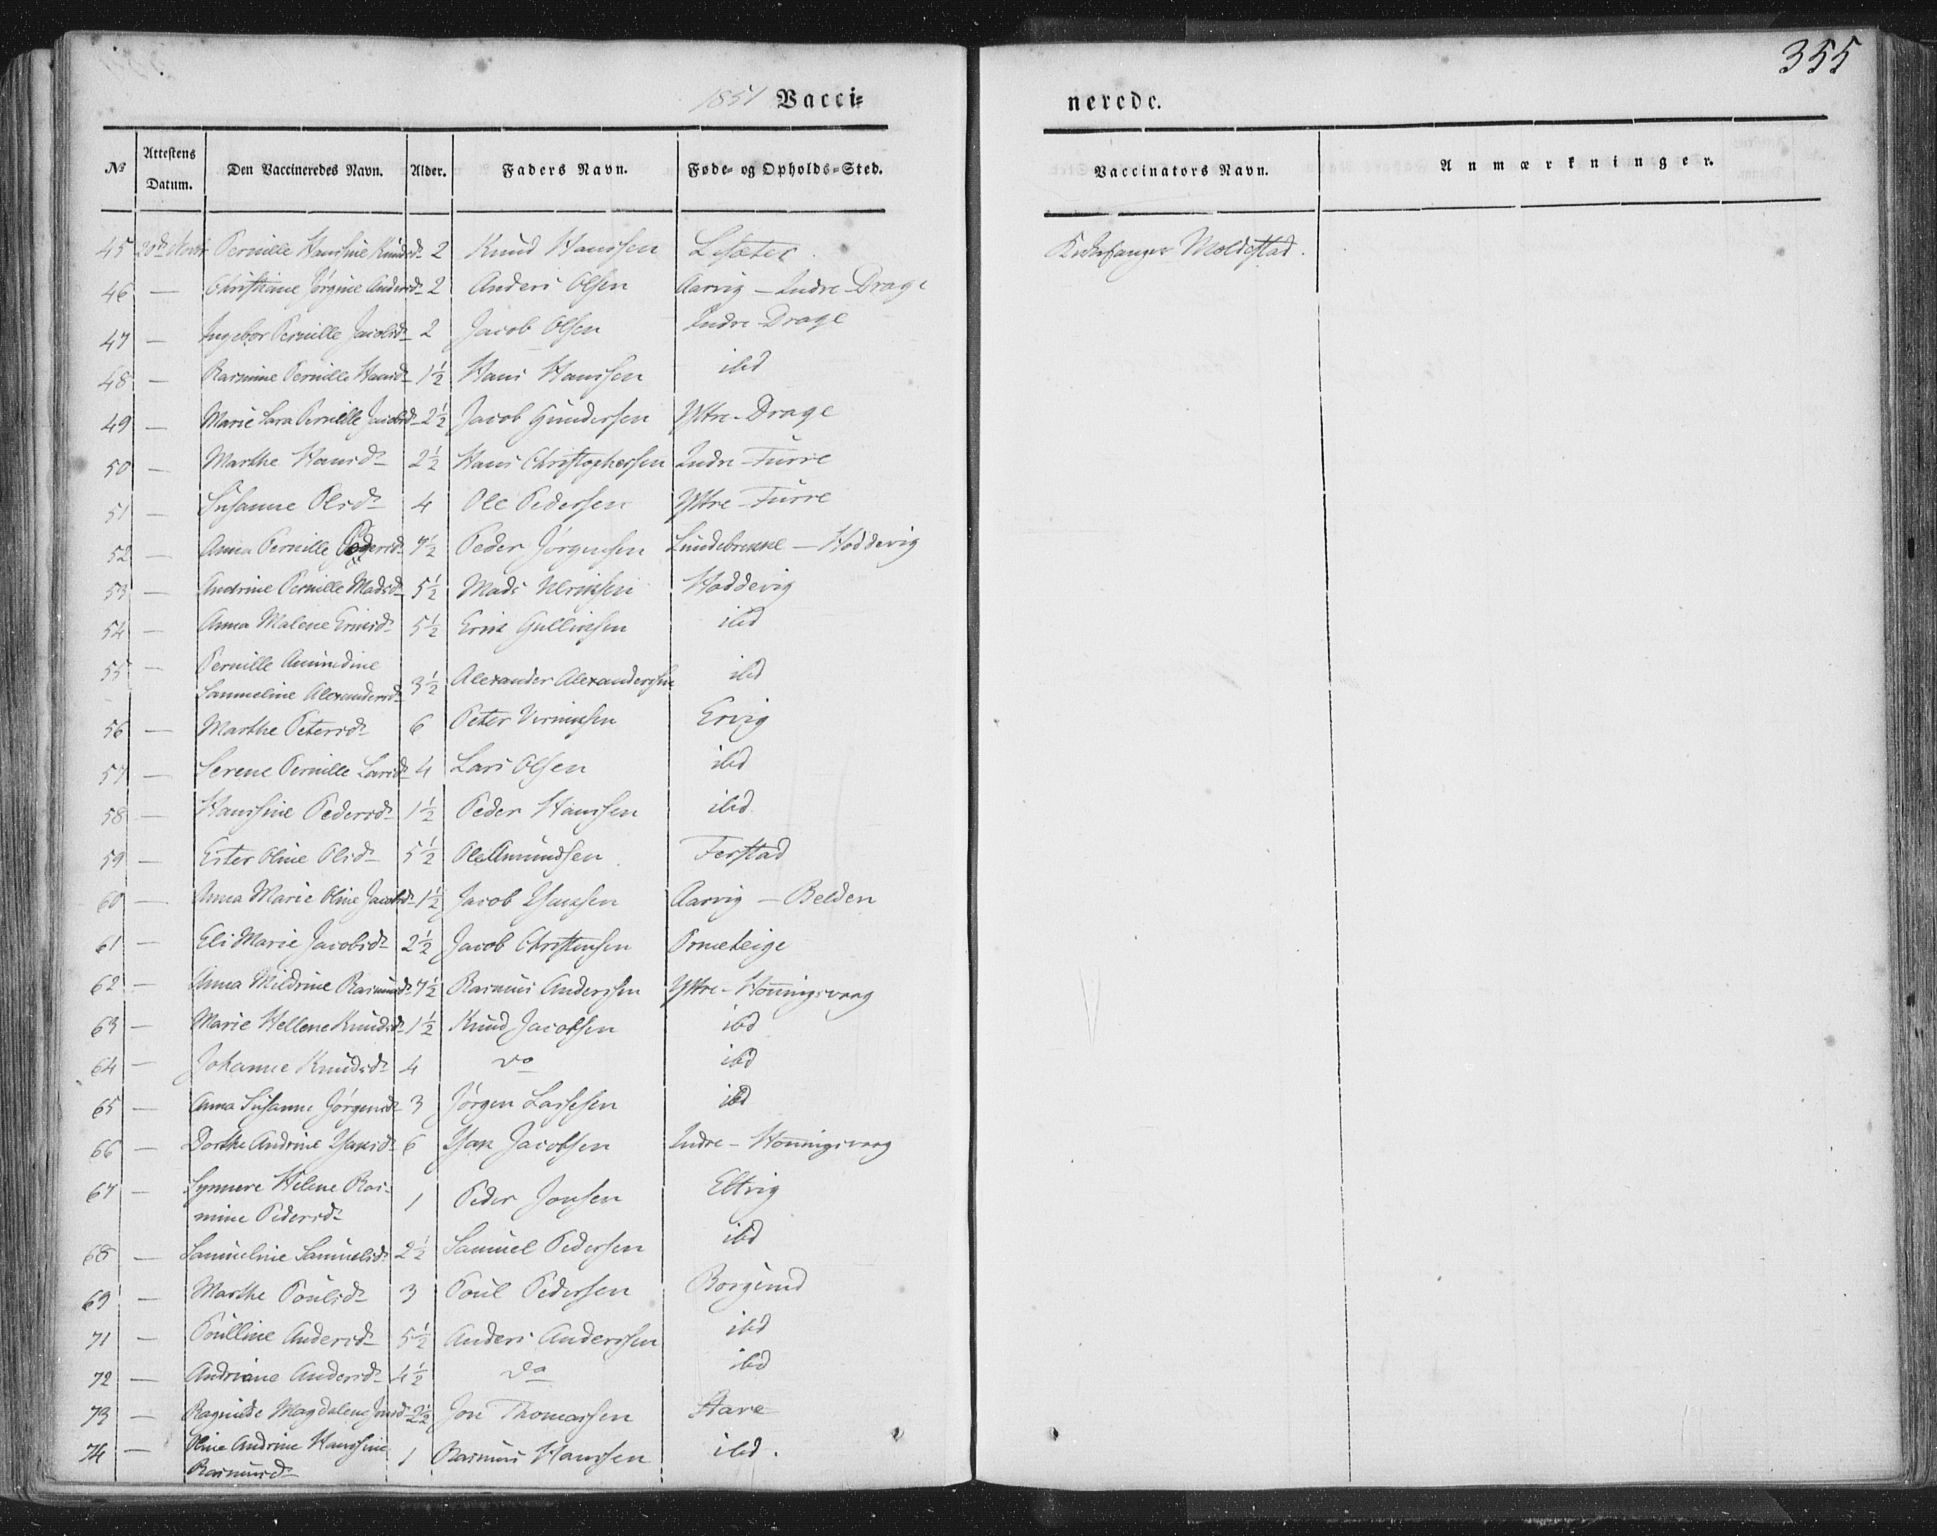 355
1851 Vacci=
nerede.
№ Attestens Datum. Den Vaccineredes Navn. Alder. Faders Navn. Føde- og Opholds-Sted. Vaccinators Navn. Anmærkninger.
45 20de Pernille Hansine Knudsd. 2 Knud Hanssen Kirkesanger Moldestad.
46 — Christiane Jørgine Andersd. 2 Anders Olsen Aarvig — Indre Drage
47 — Ingebor Pernille Jacobsd. 2 Jacob Olsen Indre Drage
48 — Rasmine Pernille Hansd. 1½ Hans Hanssen ibd
49 — Marie Lara Pernille Jacobsd. 2½ Jacob Gundersen Yttre-Drage
50 — Marthe Hansd. 2½ Hans Christophersen Indre-Furre
51 — Susanne Olsd. 4 Ole Pedersen Yttre-Furre
52 — Anna Pernille Pedersd. 7½ Peder Jørgensen Lundebrekke — Hoddevig
53 — Andrine Pernille Madsd. 5½ Mads Hoddevig
54 — Anna Malene Ericsd. 5½ Eric ibd
55 — Pernille
Samueline Alexandersd. 3½ Alexander Alexandersen ibd
56 — Marthe Petersd. 6 Peter Ervig
57 — Serene Pernille Larsd. 4 Lars Olsen ibd
58 — Hansine Pedersd. 1½ Peder Hanssen ibd.
59 — Ester Oline Olsd. 5½ Ole Amundsen Ferstad
60 — Anna Marie Oline Jacobsd. 1½ Jacob Aarvig — Belden
61 — Eli Marie Jacobsd. 2½ Jacob Christensen
62 — Anna Mildrine Rasmusd. 7½ Rasmus Anderssen Yttre-Honningsvaag
63 — Marie Hellene Knudsd. 1½ Knud Jacobsen ibd
64 — Johanne Knudsd. 4 do ibd
65 — Anna Susanne Jørgensd. 3 Jørgen Lassesen ibd
66 — Dorthe Andrine 6 Jacobsen Indre-Honningsvaag
67 — Synnere Helene Ras-
mine Pedersd. 1 Peder Jonsen Eltvig
68 — Samueline Samuelsd. 2½ Samuel Pedersen ibd
69 — Marthe Poulsd. 3 Poul Pedersen Borgund
71 — Poulline Andersd. 5½ Anders Anderssen ibd
72 — Andriane Andersd. 4½ do ibd
73 — Ragnilde Magdalene Jonsd. 2½ Jon Thomassen Stave
74 — Oline Andrine Hansine
Rasmusd. 1 Rasmus Hanssen ibd.